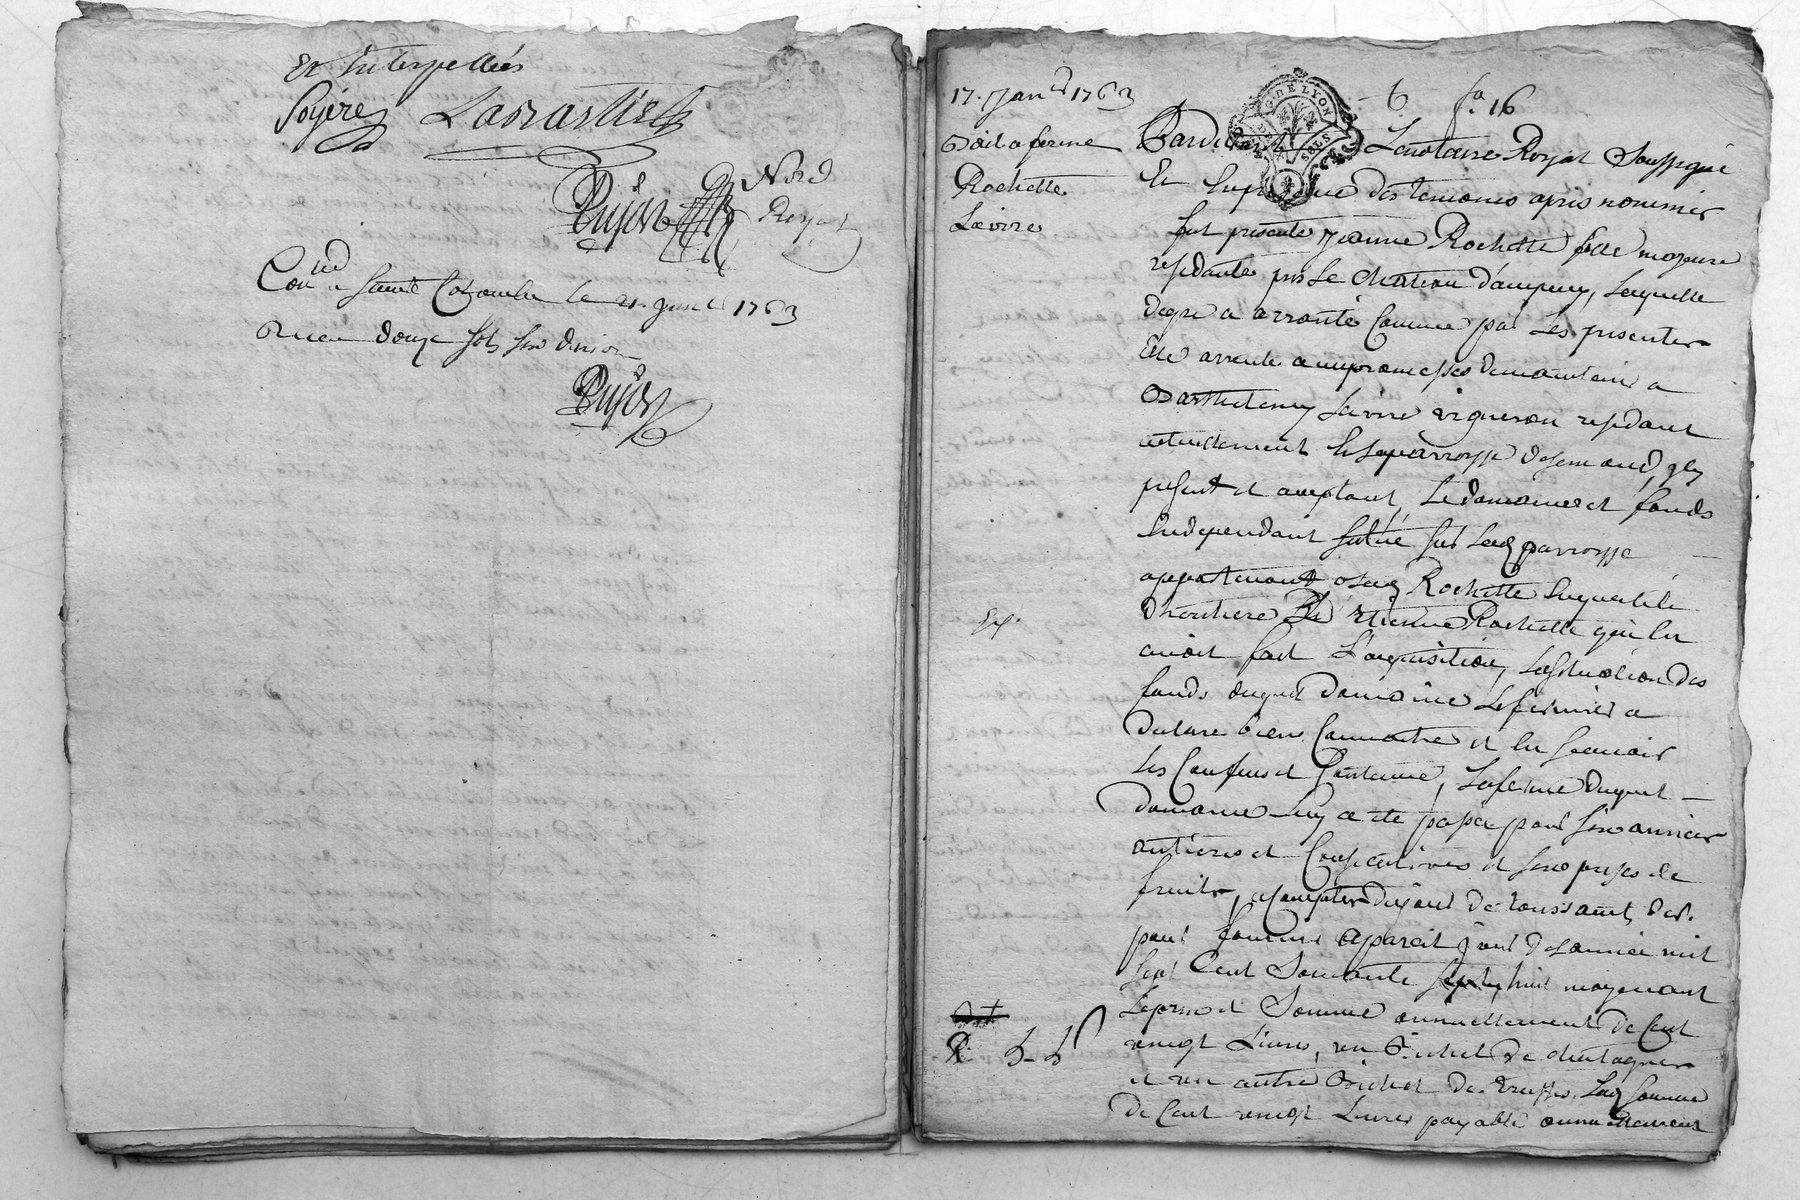 Et interpellés
Poyéres Labvasties
Pujol No.re
Royal
Con.lé a Sainte Colombe le 21 janv.r 1763
Recu douze sols six deniers
Pujol
17. Janv.r 1763
Bail a ferme
Rochette
Laivire
6 f.o 16
G. DE LYON
SOLS
Pardevant Le notaire Royal Soussigné
Et En presence des temoins apres nommés
fut presente Jeanne Rochette fille majeure
residante pres Le Chateau d'ampuy, Laquelle
de gre a arrenté Comme par Les presentes
Elle arrente avec promesses de maintenir a
Barthelemy Laivire vigneron residant
actuellement En La parroisse de Semond, icy
present et acceptant, Le domaine et fonds
En dependant situé sur Lad parroisse
appartenant a Lad Rochette En qualité
d'heritiere de Etienne Rochette qui En
avoit fait L'acquisition, La situation des
fonds duquel domaine Le fermier a
declare bien Connoitre et En Scavoir
Les Confins et Contenue, La ferme duquel
domaine Luy a ete passée pour six années
entieres et Consecutives et six prises de
fruits, a Compter du jour de toussaint der.
pour finir a pareil jour de L'année mil
sept Cent Soixante huit moyenant
Le prix et Somme annuellement de Cent
vingt Livres, un Bichet de chataignes
et un autre Bichet de truffes, Lad Somme
de Cent vingt Livres payable annuellement